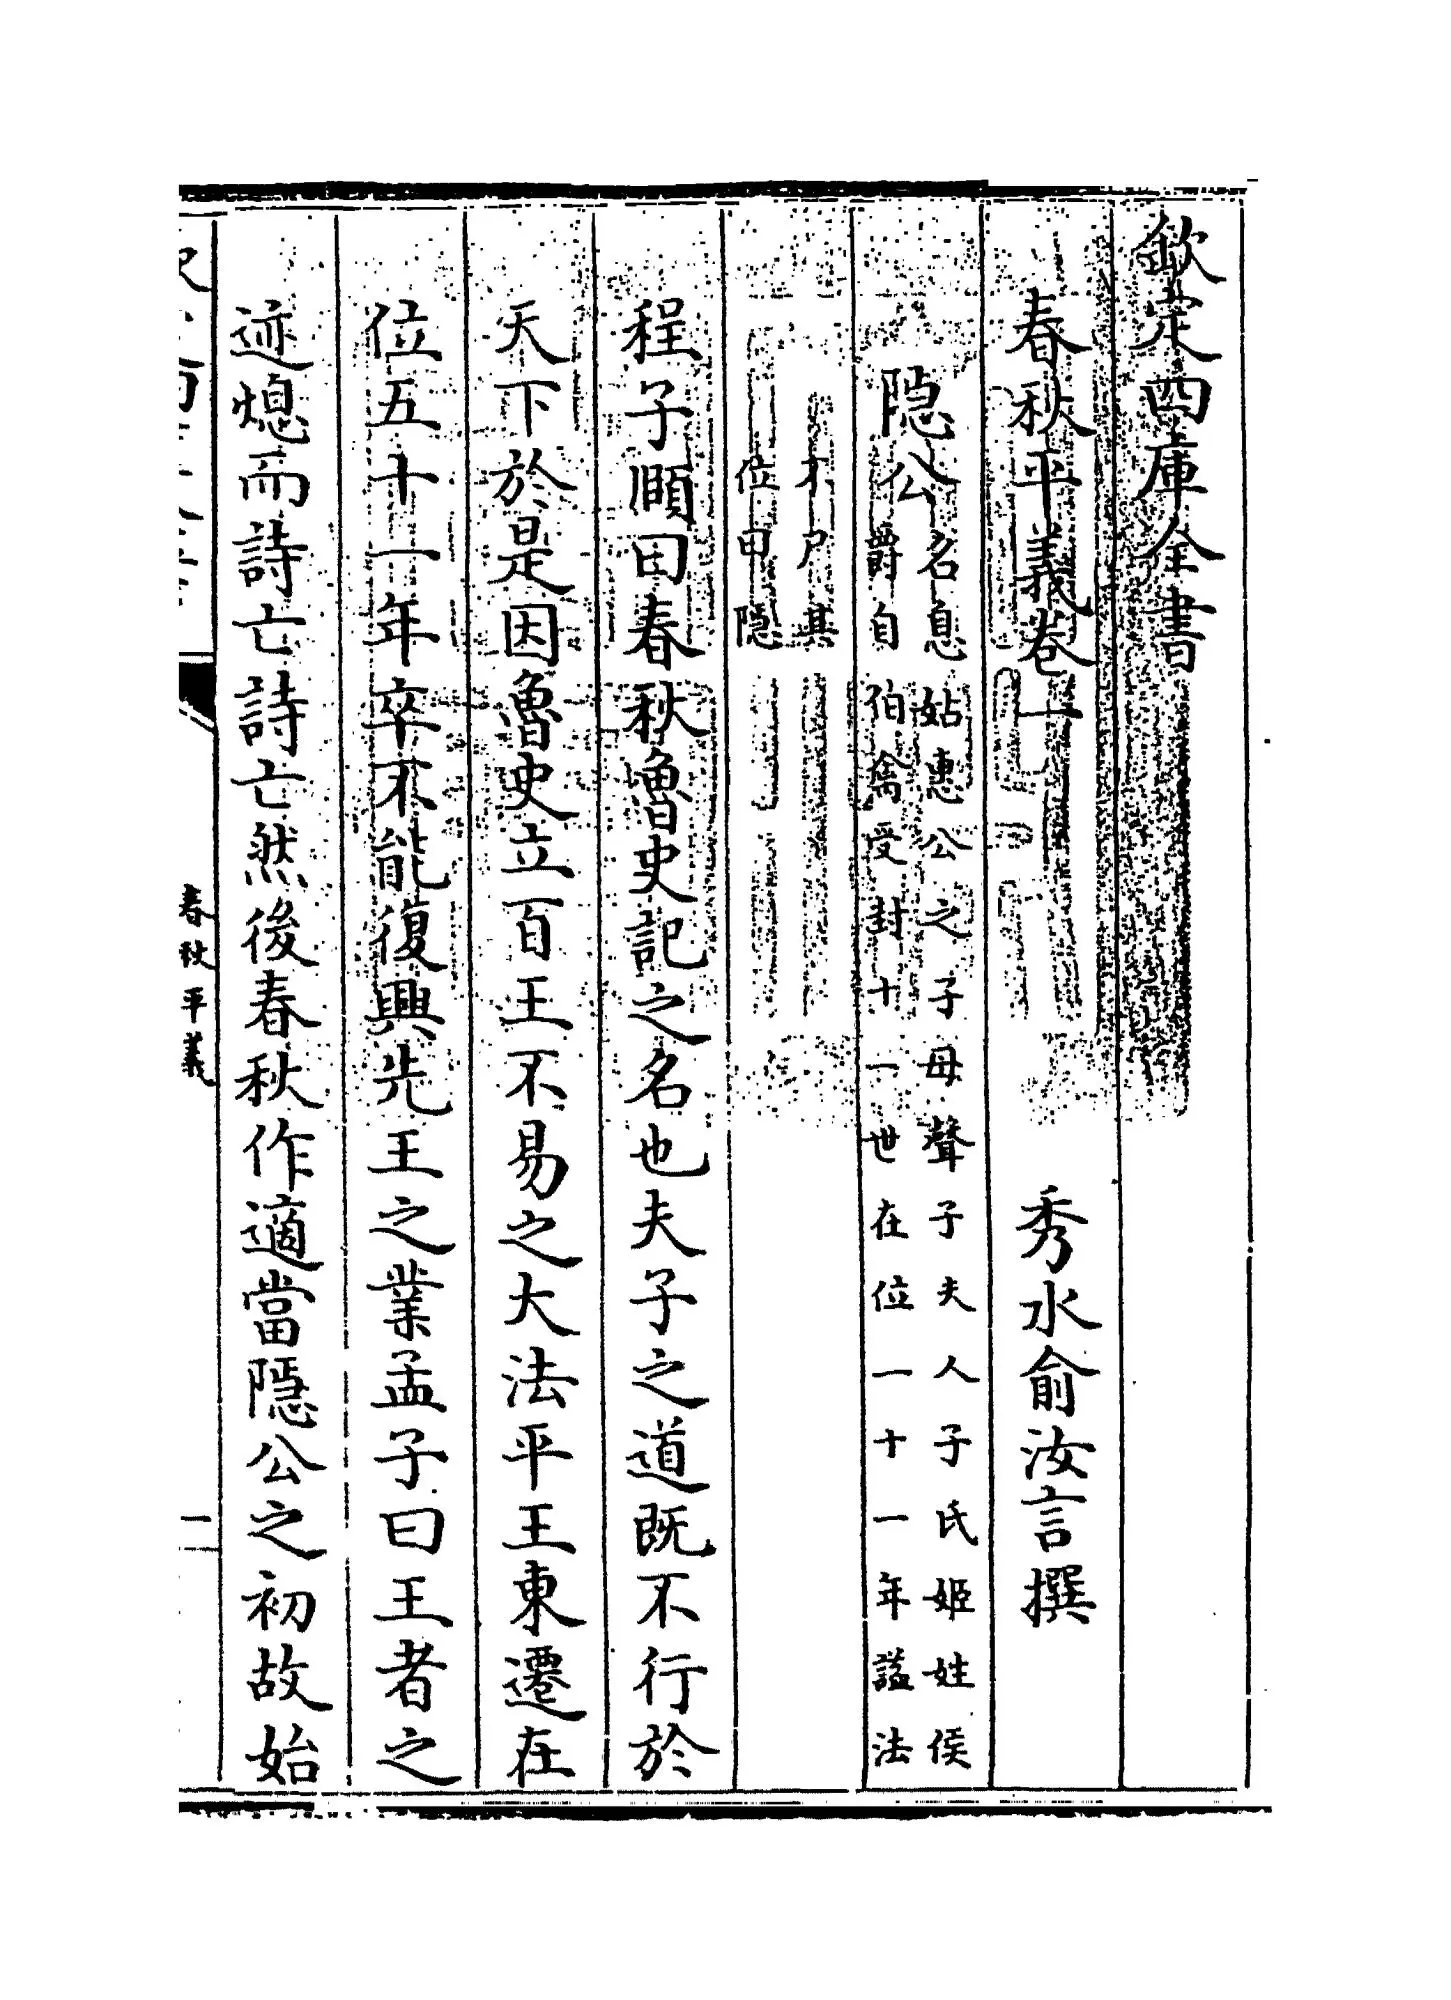 欽定四庫全書
春秋平義卷一
秀水俞汝言撰
隱公
名息姑惠公之子母聲子夫人子氏姬姓侯
爵自伯禽受封十一世在位一十一年諡法
不尸其
位曰隱
程子頤曰春秋魯史記之名也夫子之道既不行於
天下於是因魯史立百王不易之大法平王東遷在
位五十一年卒不能復興先王之業孟子曰王者之
迹熄而詩亡詩亡然後春秋作適當隱公之初故始
春秋平義
一